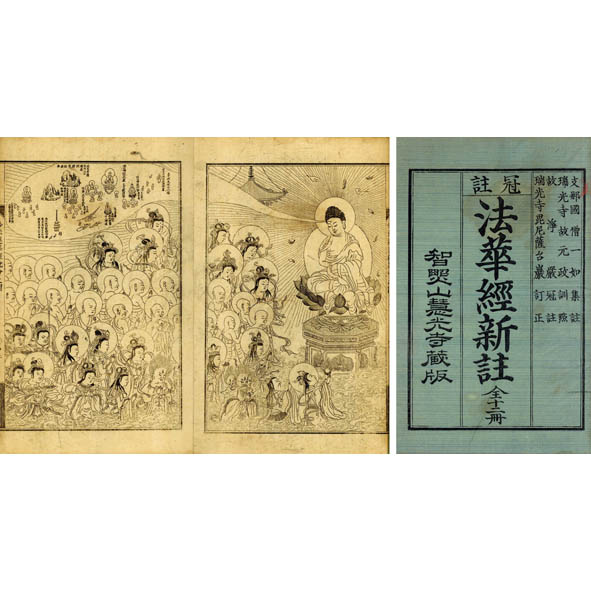 支那國僧一如集註
瑞光寺故元政訓點
故淨嚴冠註
瑞光寺毘尼薩台巖訂正
冠註
法華經新註 全十二冊
智照山慧光寺藏版